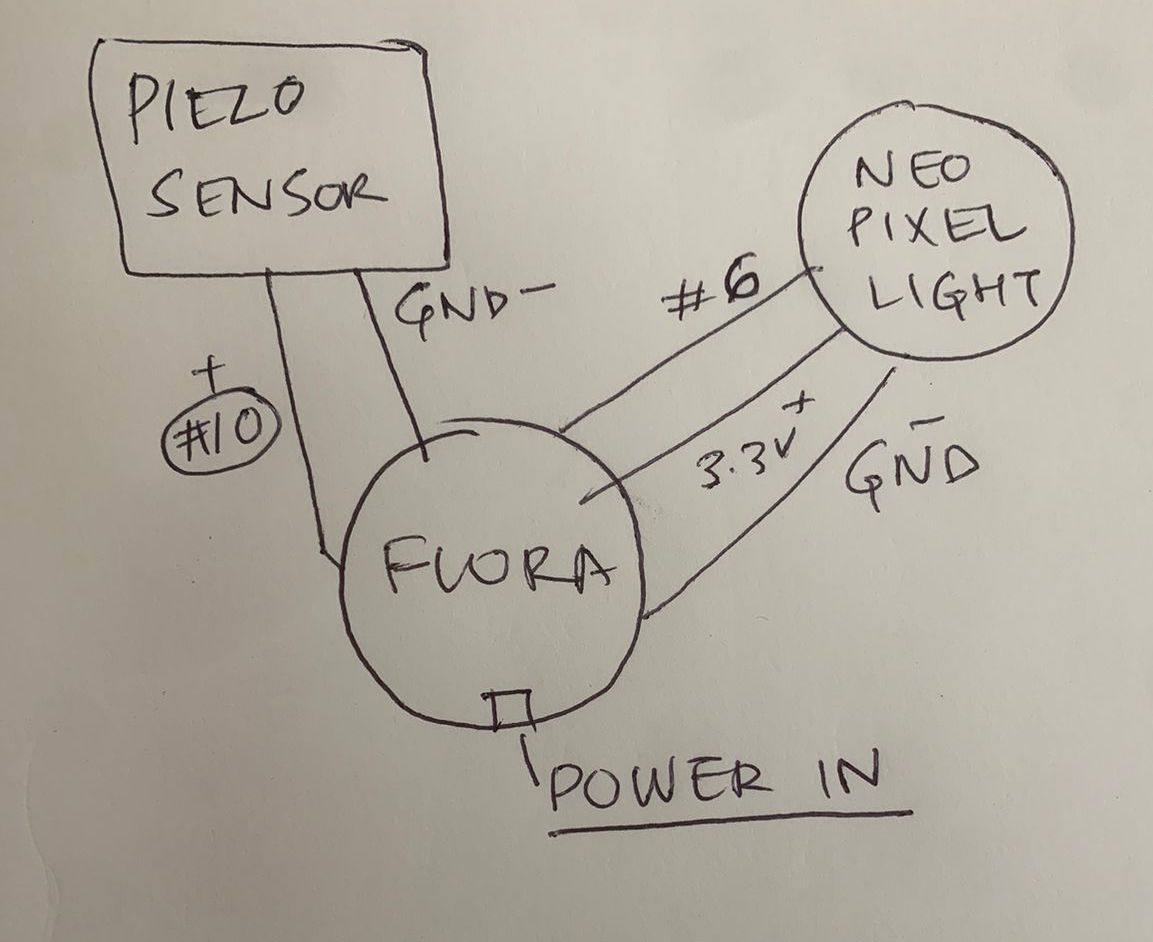 PIEZO
SENSOR
NEO
PIXEL
LIGHT
GND -
#6
+
#10
3.3V +
-
GND
FLORA
POWER IN